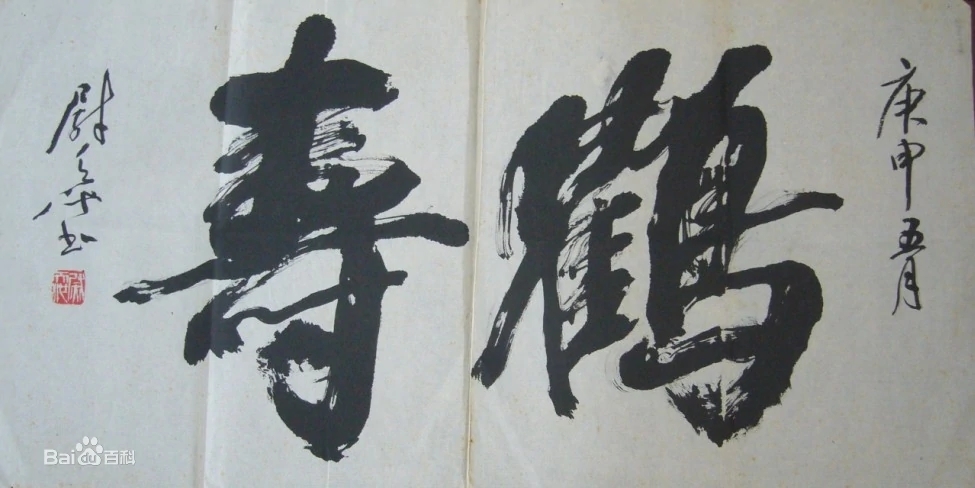 庚申五月
鶴壽
尉天池书
Bai百科